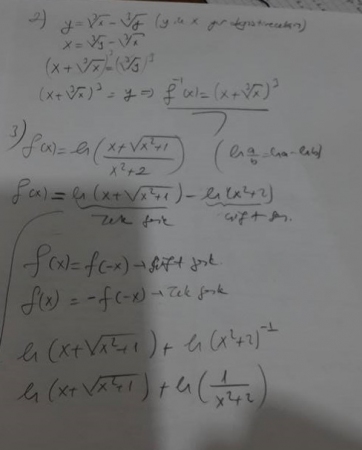 2) y = ∛x - ∛y (y ile x yer değiştirecek)
x = ∛y - ∛x
(x + ∛x)³ = (∛y)³
(x + ∛x)³ = y ⇒ f⁻¹(x) = (x + ∛x)³
3) f(x) = ln((x + √(x²+1))/(x²+2)) (ln a/b = lna - lnb)
f(x) = ln(x + √(x²+1)) - ln(x²+2)
tek fonk çift fon.
f(x) = f(-x) → çift fonk
f(x) = -f(-x) → tek fonk
ln(x + √(x²+1)) + ln(x²+2)⁻¹
ln(x + √(x²+1)) + ln(1/(x²+2))